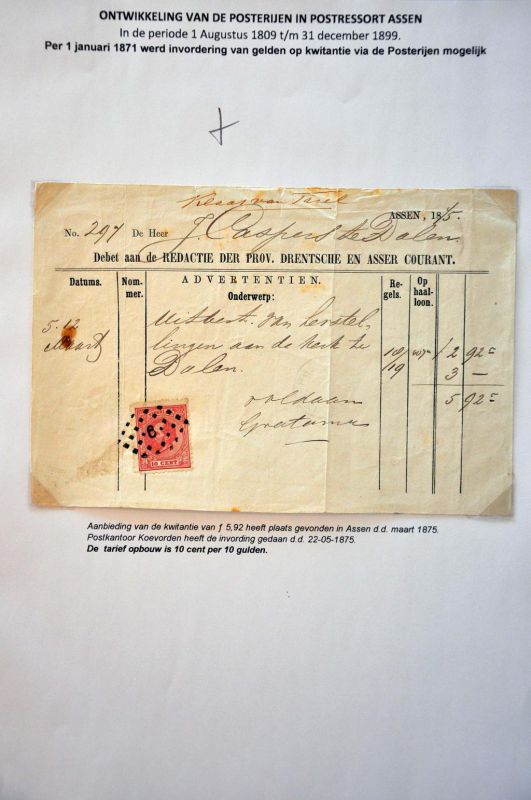 ONTWIKKELING VAN DE POSTERIJEN IN POSTRESSORT ASSEN
In de periode 1 Augustus 1809 t/m 31 december 1899.
Per 1 januari 1871 werd invordering van gelden op kwitantie via de Posterijen mogelijk
Klaas van Tarel
ASSEN, 1875.
No. 297 De Heer J. Caspers te Dalen
Debet aan de REDACTIE DER PROV. DRENTSCHE EN ASSER COURANT.
Datums. Nommer. ADVERTENTIEN. Onderwerp: Regels. Op haalloon.
5. 12 Maart
Uitbest. van herstel-
lingen aan de kerk te 18/19 2 92
Dalen. 3 —
voldaan 5 92
Gratama
6
10 CENT
Aanbieding van de kwitantie van ƒ 5,92 heeft plaats gevonden in Assen d.d. maart 1875.
Postkantoor Koevorden heeft de invording gedaan d.d. 22-05-1875.
De tarief opbouw is 10 cent per 10 gulden.